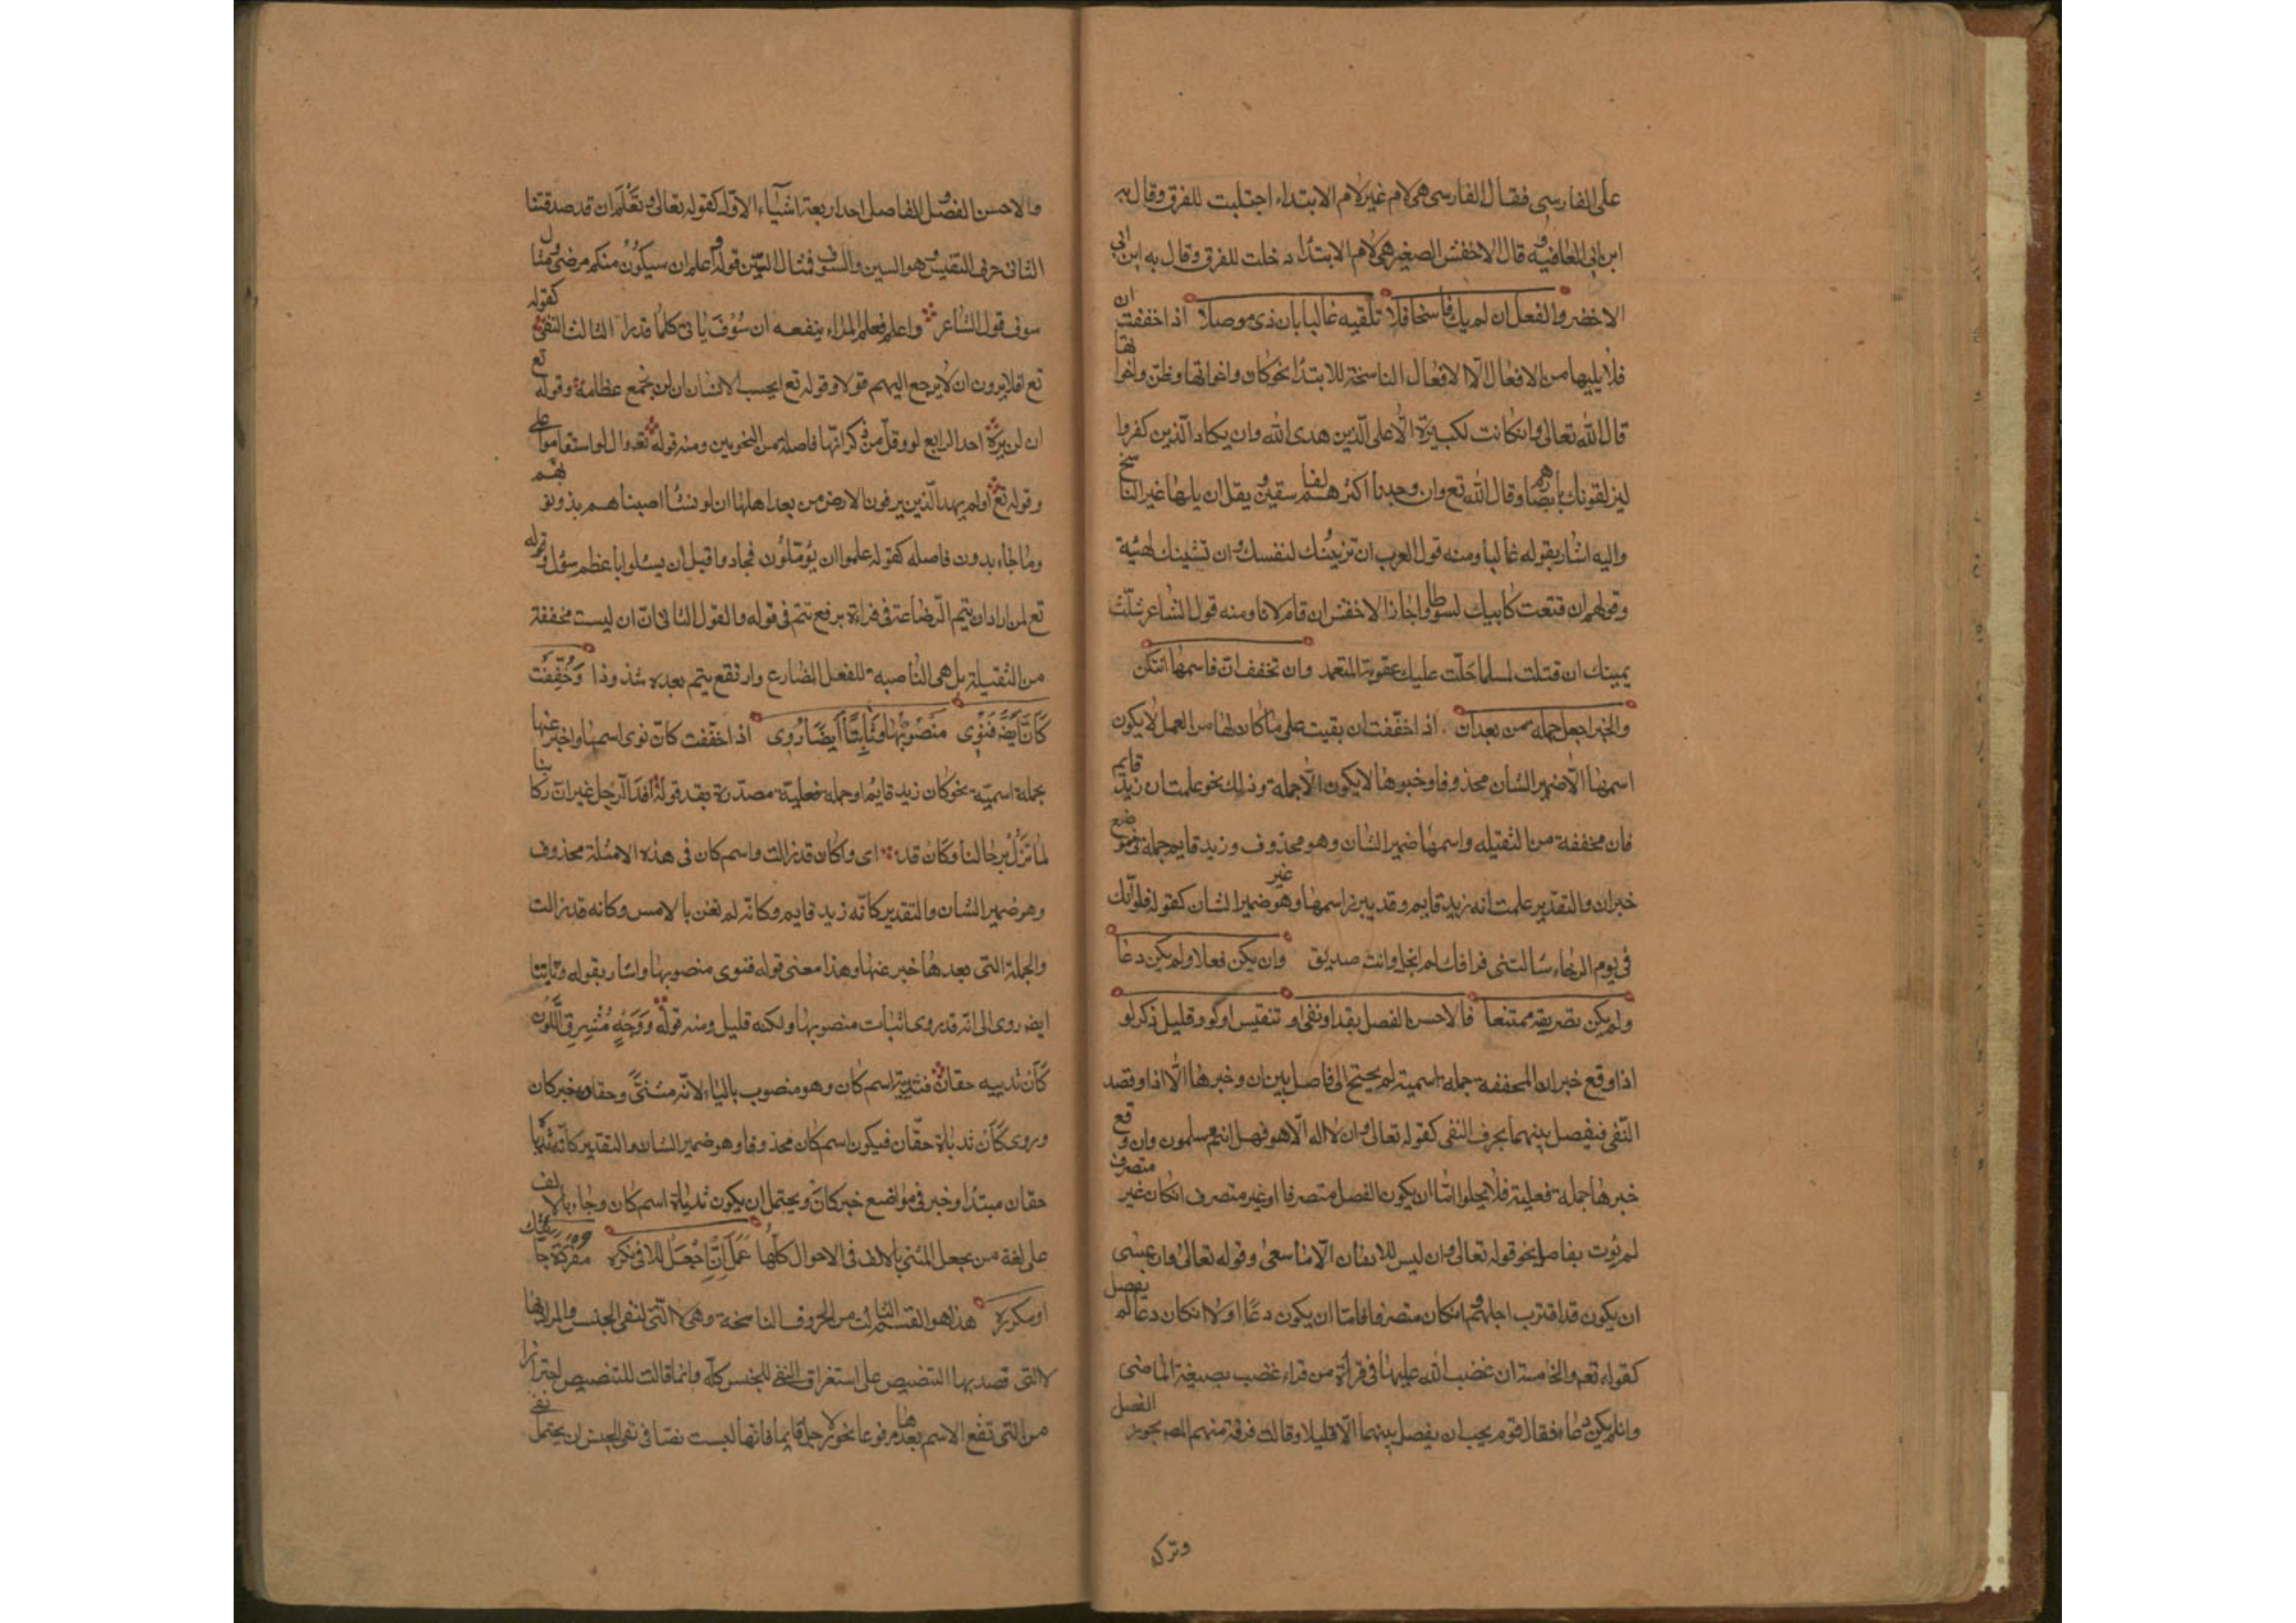 على الفارسى فقال الفارسى هى لام غير لام الابتداء اجتلبت للفرق وقال به
ابن ابى العافيه وقال الاخفش الصغير هى لام الابتداء دخلت للفرق وقال به ابن ابى
الاخضر والفعل ان لم يك ناسخا فلا تلفيه غالبا بان ذى موصلا اذا خففت ان
فلا يليها من الافعال الّا الافعال الناسخة للابتداء نحو كان واخواتها وظن واخواتها
قال الله تعالى وان كانت لكبيرة الّا على الّذين هدى الله وان يكاد الّذين كفروا
ليزلقونك بابصارهم وقال الله تع وان وجدنا اكثرهم لفاسقين ويقل ان يليها غير الناسخ
واليه اشار بقوله غالبا ومنه قول العرب ان تزينك لنفسك وان تشينك لهيه
وقولهم ان قنعت كاتبك لسوطا واجاز الاخفش ان قام لانا ومنه قول الشاعر شلّت
يمينك ان قتلت لمسلما حلّت عليك عقوبة المتعمد وان تخفف انّ فاسمها استكن
والخبر اجعل جمله من بعد ان اذا خفّفت ان بقيت على ما كان لها من العمل لا يكون
اسمها الّا ضمير الشان محذوفا وخبرها لا يكون الّا جملة وذلك نحو علمت ان زيد قايم
فان مخففة من الثقيله واسمها ضمير الشان وهو محذوف وزيد قايم جمله فى موضع
خبر ان والتقدير علمت انه زيد قايم وقد يبرز اسمها وهو غير ضمير الشان كقوله فلو انّك
فى يوم الرخاء سالتنى فراقك لم ابخل وانت صديق وان يكن فعلا ولم يكن دعا
ولم يكن تصريفه ممتنعا فالاحسن الفصل بقد او نفى او تنفيس او لو وقليل ذكر لو
اذا وقع خبر ان المخففة جملة اسمية لم يحتج الى فاصل بين ان وخبرها الّا اذا قصد
النّفى فيفصل بينهما بحرف النفى كقوله تعالى وان لا اله الّا هو فهل انتم مسلمون وان وقع
خبرها جملة فعلية فلا يخلوا امّا ان يكون الفصل متصرفا او غير متصرف ان كان غير متصرف
لم يوت بفاصل نحو قوله تعالى وان ليس للانسان الّا ما سعى وقوله تعالى وان عسى
ان يكون قد اقترب اجلهم وان كان متصرفا فامّا ان يكون دعا او لا ان كان دعا لم يفصل
كقوله تع والخامسة ان غضب الله عليها فى قراة من قراء غضب بصيغة الماضى
وان لم يكن دعاء فقال قوم يجب ان يفصل بينهما الّا قليلا وقالت فرقة منهم المص يجوز الفصل
وتركه
والاحسن الفصل والفاصل احد اربعة اشياء الاوّل قد كقوله تعالى ونعلم ان قد صدقتنا
الثانى حرف التنفيس وهو السين والسوف فمثال السّين قوله واعلم ان سيكون منكم مرضى ومثال
سوف قول الشاعر واعلم فعلم المراء ينفعه ان سوف ياتى كلما قدرا الثالث النفى كقوله
تع افلا يرون ان لا يرجع اليهم قولا وقوله تع ايحسب الانسان ان لن نجمع عظامه وقوله تع
ان لن يره احد الرابع لو وقل من ذكر انّها فاصلة من النحويين ومنه قوله تع وان لو استقاموا على
وقوله تع اولم يهد الّذين يرثون الارض من بعد اهلها ان لو نشا اصبناهم بذنوبهم
وما جاء بدون فاصله كقوله علموا ان يؤمّلون فجادوا قبل ان يسئلوا باعظم سؤل وقوله
تع لمن اراد ان يتم الرّضاعة فى قراءة برفع تتم فى قوله والقول الثانى انّ ان ليست مخففة
من الثقيلة بل هى الناصبة للفعل المضارع وارتفع يتم بعده شذوذا وخُفّفت
كانّ ايضا فنوى منصوبها وثابتا ايضا روى اذا خفّفت كانّ نوى اسمها واخبر عنها
بجملة اسميّة نحو كان زيد قايم او جملة فعلية مصدّرة بقد قوله افد الترحل غير انّ ركابنا
لما تزل برحالنا وكان قد اى وكان قد زالت واسم كان فى هذه الامثلة محذوف
وهو ضمير الشان والتقدير كانّه زيد قايم وكانّه لم تغن بالامس وكانه قد زالت
والجملة التى بعدها خبر عنها وهذا معنى قوله فنوى منصوبها واشار بقوله وثابتا
ايضا روى الى انّه قد روى اثبات منصوبها ولكنه قليل ومنه قوله ووجه مشرق اللّون
كان ثدييه حقان فثدييه اسم كان وهو منصوب بالياء لانّه مثنّى وحقان خبر كان
وروى كان ثدياه حقّان فيكون اسم كان محذوفا وهو ضمير الشان والتقدير كانّه ثدياه
حقان مبتدا وخبر فى مواضع خبر كان ويحتمل ان يكون ثدياه اسم كان وجاء بالالف
على لغة من يجعل المثنى بالالف فى الاحوال كلّها عمل انّ اجعل للا فى نكره مفردة جاءتك
او مكرره هذا هو القسم الثالث من الحروف الناسخة وهى لا الّتى لنفى الجنس والمراد بها
لا التى قصد بها التنصيص على استغراق النفى للجنس كلّه وانما قالت للتنصيص احترازا
من التى تقع الاسم بعدها مرفوعا نحو لا رجل قايما فانها ليست نصّا فى نفى الجنس ان يحتمل